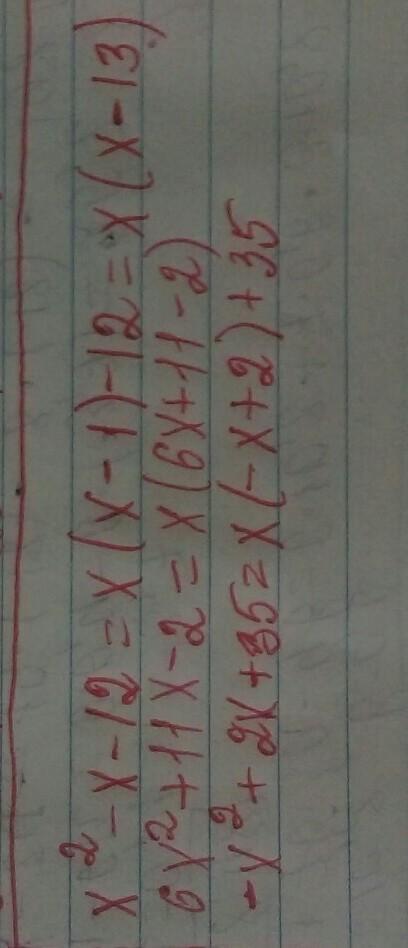 x² - x - 12 = x(x - 1) - 12 = x(x - 13)
6x² + 11x - 2 = x(6x + 11 - 2)
-x² + 2x + 35 = x(-x + 2) + 35